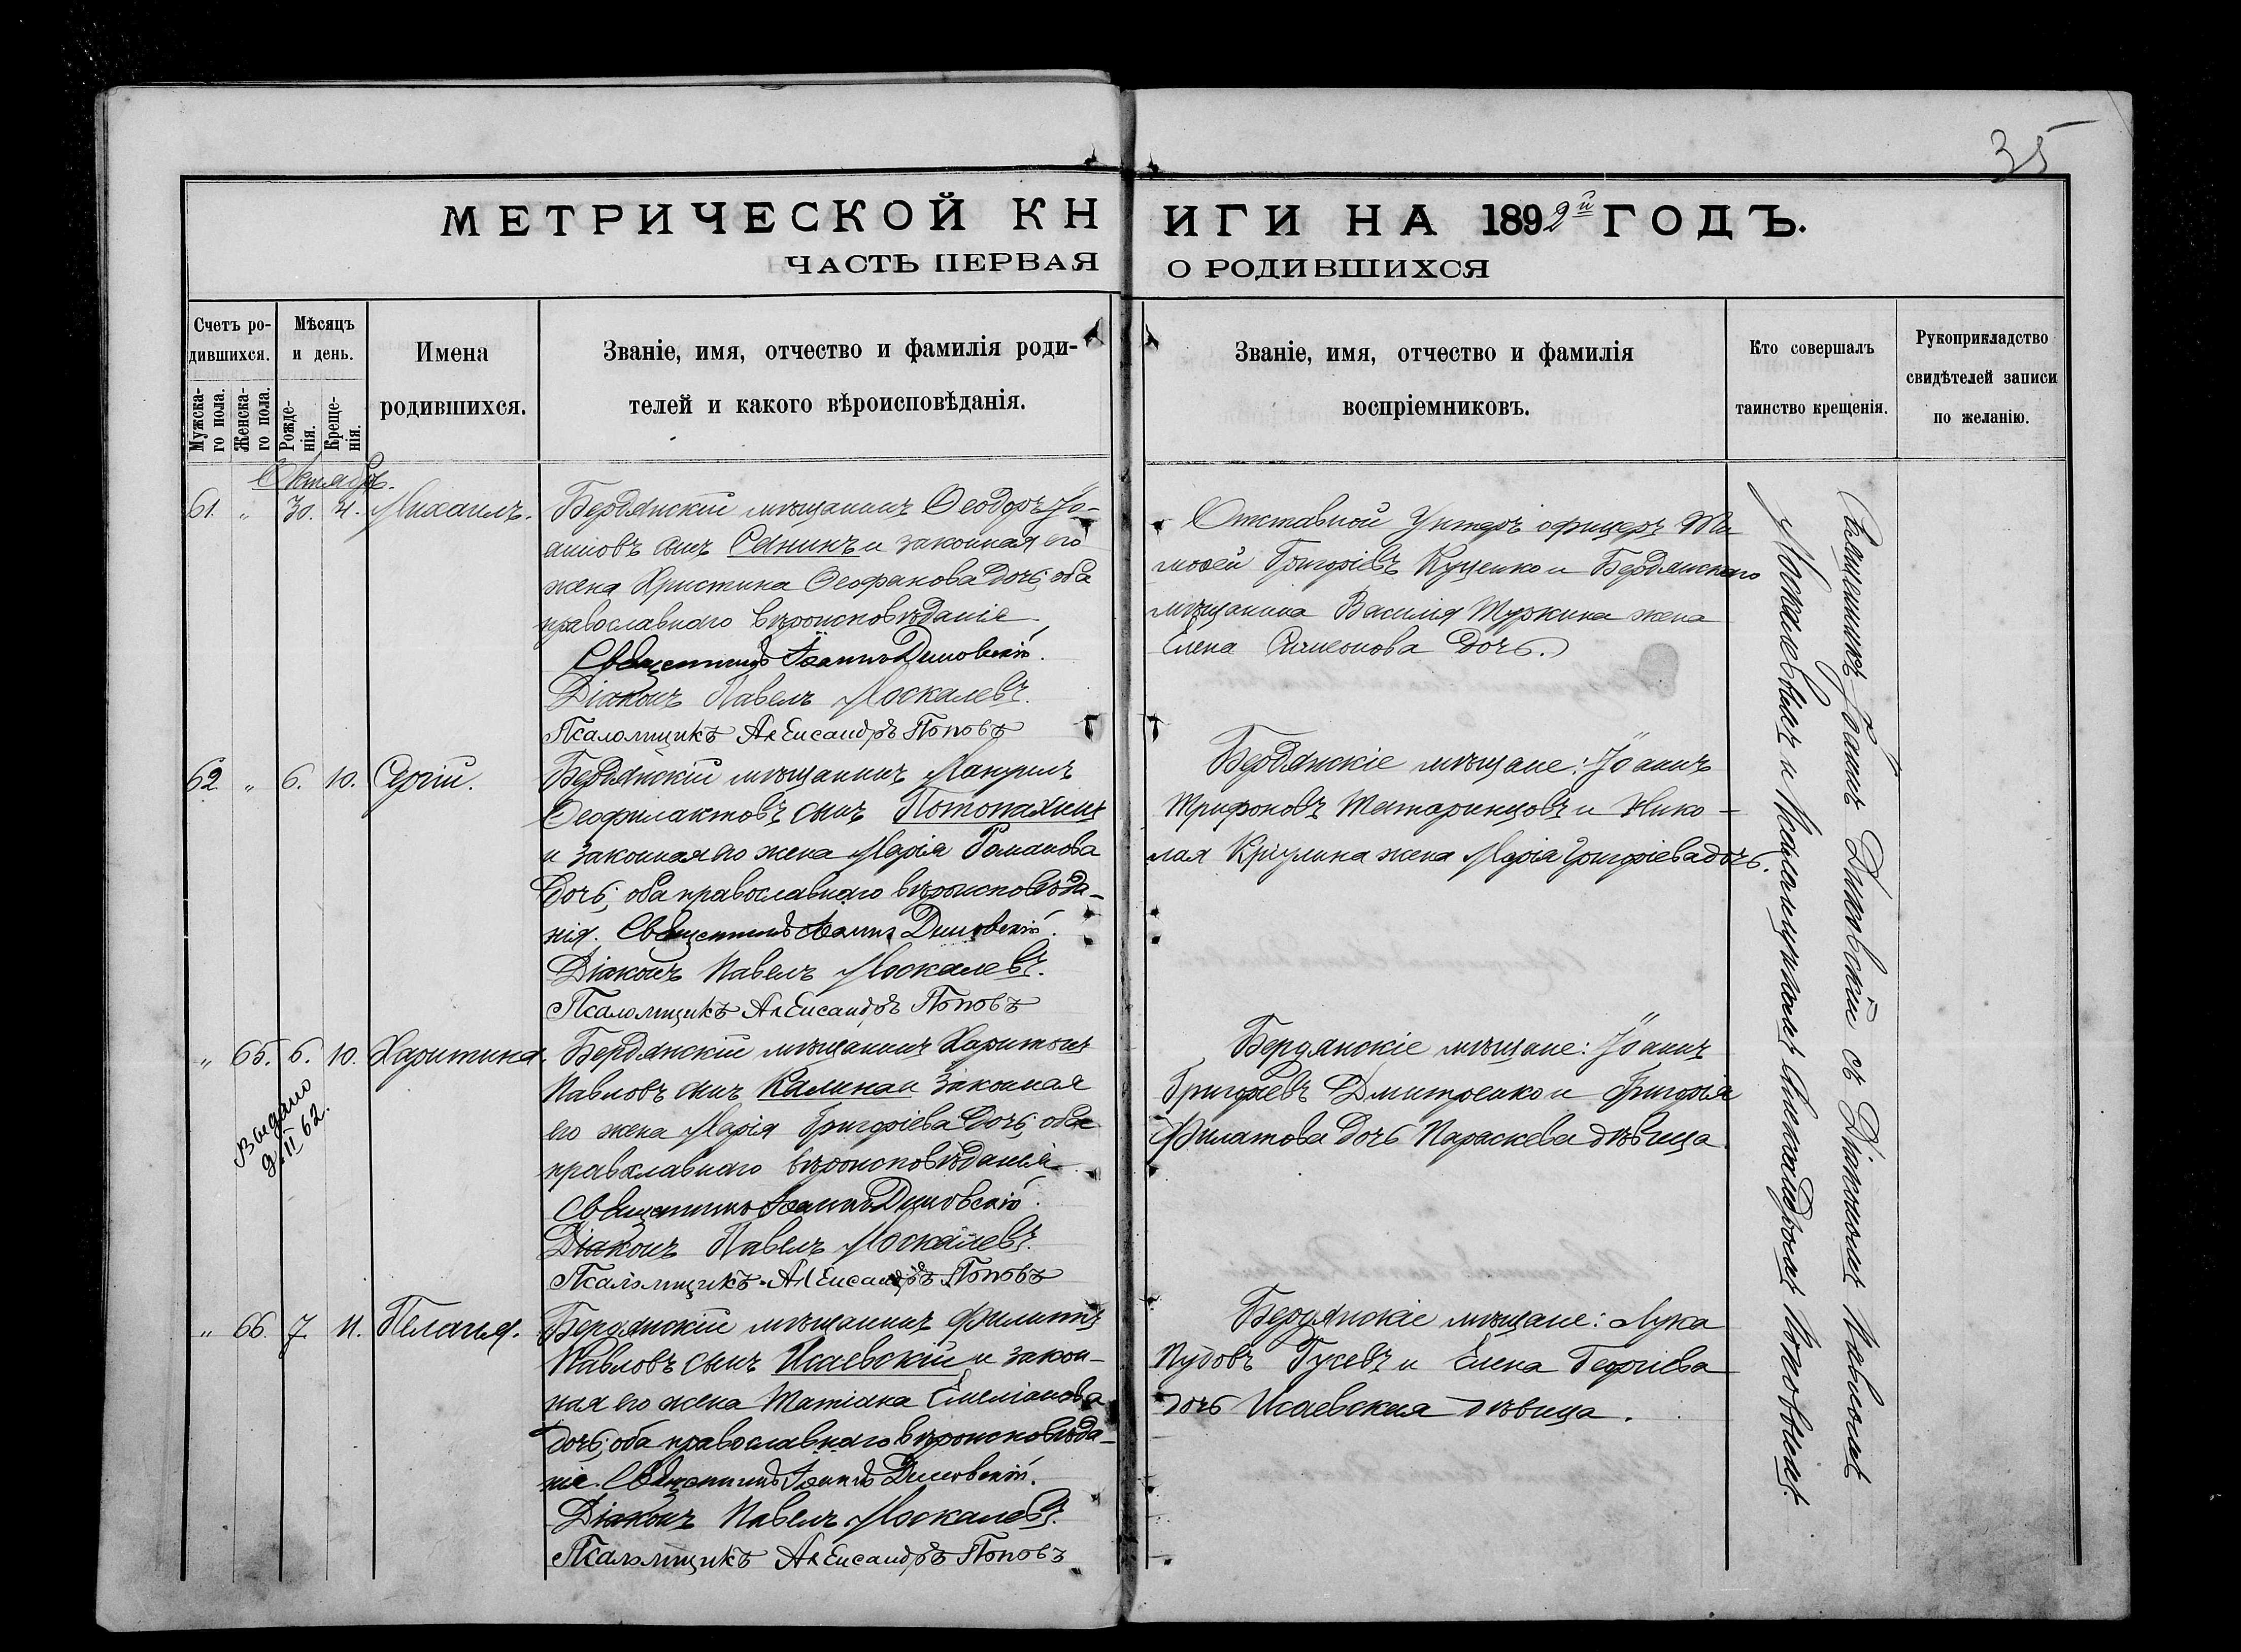 35
МЕТРИЧЕСКОЙ КН
ИГИ НА 1892й ГОДЪ.
ЧАСТЬ ПЕРВАЯ
О РОДИВШИХСЯ
Счетъ ро-
дившихся.
Мужска-
го пола.
Женска-
го пола.
Мѣсяцъ
и день.
Рожде-
нія.
Креще-
нія.
Имена
родившихся.
Званіе, имя, отчество и фамилія роди-
телей и какого вѣроисповѣданія.
Званіе, имя, отчество и фамилія
воспріемниковъ.
Кто совершалъ
таинство крещенія.
Рукоприкладство
свидѣтелей записи
по желанію.
Октябрь.
61. " 30. 4. Михаилъ.
Бердянскій мѣщанинъ Ѳеодоръ Іо-
анновъ сынъ Сянинъ и законная его
жена Христина Ѳеофанова дочь; оба
православнаго вѣроисповѣданія.
Священникъ Іоаннъ Димовскій.
Діаконъ Павелъ Москалевъ.
Псаломщикъ Александръ Поповъ
Отставной Унтеръ офицеръ Ти-
моѳей Григоріевъ Куценко и Бердянскаго
мѣщанина Василія Туркина жена
Елена Симеонова дочь.
62. " 6. 10. Сергій.
Бердянскій мѣщанинъ
Ѳеофилактовъ сынъ Потопахинъ
и законная его жена Марія Романова
дочь; оба православнаго вѣроисповѣда-
нія. Священникъ Іоаннъ Димовскій.
Діаконъ Павелъ Москалевъ.
Псаломщикъ Александръ Поповъ
Бердянскіе мѣщане: Іоаннъ
Трифоновъ Татаринцовъ и Нико-
лая Кріулина жена Марія Григоріева дочь.
" 65. 6. 10. Харитина.
Выдано
9.II 62.
Бердянскій мѣщанинъ Харитонъ
Павловъ сынъ Калина и законная
его жена Марія Григоріева дочь; оба
православнаго вѣроисповѣданія.
Священникъ Іоаннъ Димовскій.
Діаконъ Павелъ Москалевъ.
Псаломщикъ Александръ Поповъ
Бердянскіе мѣщане: Іоаннъ
Григоріевъ Дмитренко и Григорія
Филатова дочь Параскева дѣвица.
" 66. 7. 11. Пелагія.
Бердянскій мѣщанинъ Филиппъ
Павловъ сынъ Исаевскій и закон-
ная его жена Татіана Емеліанова
дочь; оба православнаго вѣроисповѣда-
нія. Священникъ Іоаннъ Димовскій.
Діаконъ Павелъ Москалевъ.
Псаломщикъ Александръ Поповъ
Бердянскіе мѣщане: Лука
Пудовъ Гусевъ и Елена Георгіева
дочь Исаевская дѣвица.
Священникъ Іоаннъ Димовскій съ Діакономъ Павломъ
Москалевымъ и Псаломщикомъ Александромъ Поповымъ.